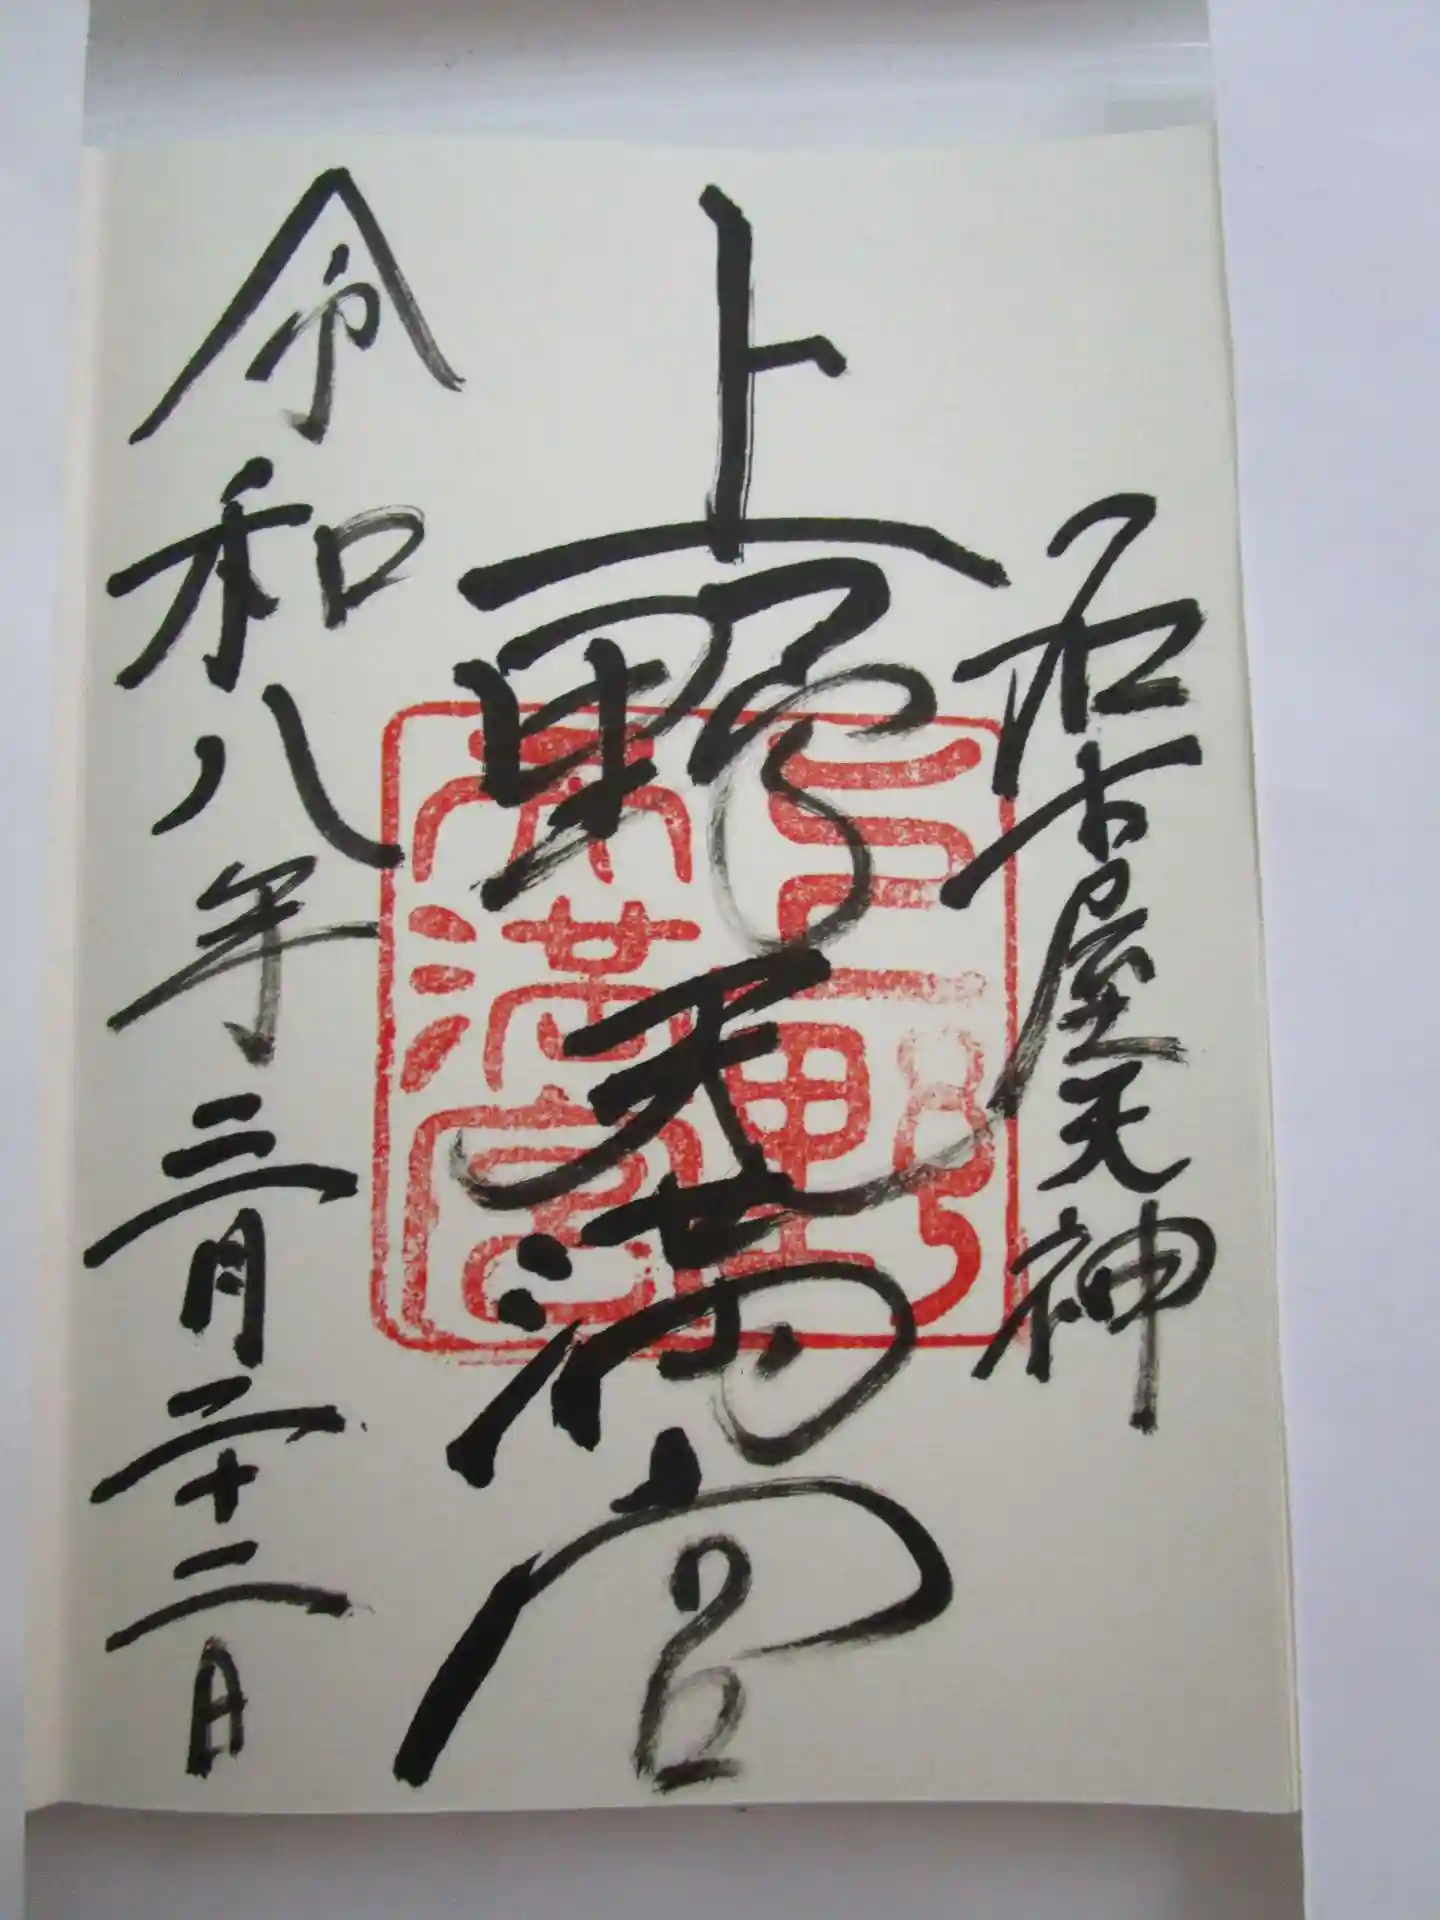 名古屋天神
上野天満宮
令和八年三月二十二日
上野
天満宮